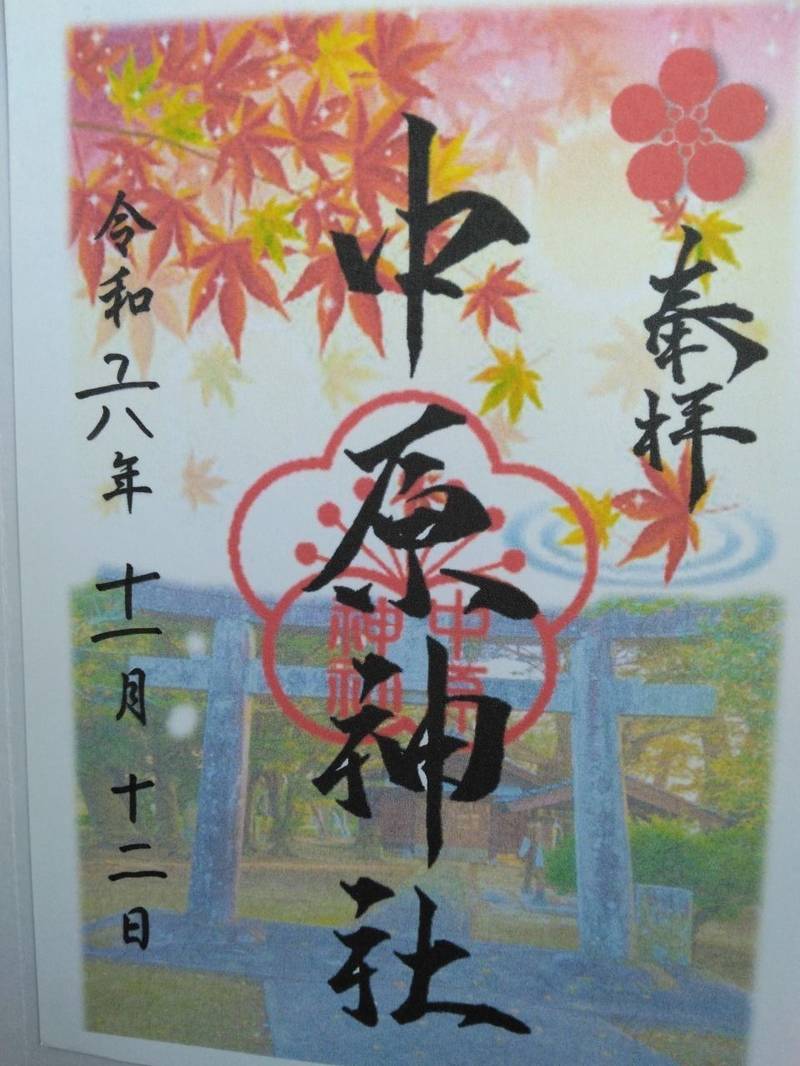 奉拝
中原神社
中原
神社
令和六年十一月十二日